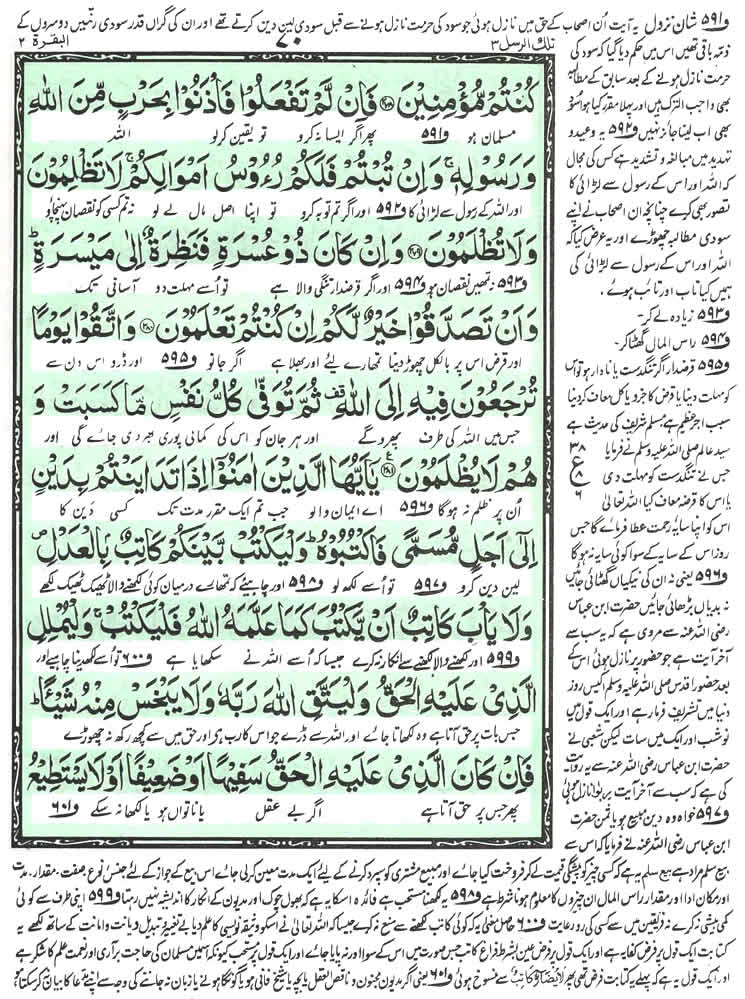 و۵۹۱ شان نزول یہ آیت اُن اصحاب کے حق میں نازل ہوئی جو سود کی حرمت نازل ہونے سے قبل سودی لین دین کرتے تھے اور ان کی گراں قدر سودی رقمیں دوسروں کے
تلك الرسل ٣ ٧٠ البقرة ٢
كُنْتُمْ مُّؤْمِنِيْنَ فَاِنْ لَّمْ تَفْعَلُوْا فَاْذَنُوْا بِحَرْبٍ مِّنَ اللّٰهِ
مسلمان ہو و۵۹۱ پھر اگر ایسا نہ کرو تو یقین کرلو اللہ
وَ رَسُوْلِهٖ ۚ وَ اِنْ تُبْتُمْ فَلَكُمْ رُءُوْسُ اَمْوَالِكُمْ ۚ لَا تَظْلِمُوْنَ
اور اللہ کے رسول سے لڑائی کا و۵۹۲ اور اگر تم توبہ کرو تو اپنا اصل مال لے لو نہ تم کسی کو نقصان پہنچاؤ
وَلَا تُظْلَمُوْنَ وَ اِنْ كَانَ ذُوْ عُسْرَةٍ فَنَظِرَةٌ اِلٰى مَيْسَرَةٍ ؕ
و۵۹۳ نہ تمھیں نقصان ہو و۵۹۴ اور اگر قرضدار تنگی والا ہے تو اُسے مہلت دو آسانی تک
وَ اَنْ تَصَدَّقُوْا خَيْرٌ لَّكُمْ اِنْ كُنْتُمْ تَعْلَمُوْنَ وَ اتَّقُوْا يَوْمًا
اور قرض اس پر بالکل چھوڑ دینا تمھارے لئے اور بھلا ہے اگر جانو و۵۹۵ اور ڈرو اس دن سے
تُرْجَعُوْنَ فِيْهِ اِلَى اللّٰهِ ثُمَّ تُوَفّٰى كُلُّ نَفْسٍ مَّا كَسَبَتْ وَ
جس میں اللہ کی طرف پھرو گے اور ہر جان کو اس کی کمائی پوری بھر دی جائے گی اور
هُمْ لَا يُظْلَمُوْنَ يٰۤاَيُّهَا الَّذِيْنَ اٰمَنُوْۤا اِذَا تَدَايَنْتُمْ بِدَيْنٍ
اُن پر ظلم نہ ہوگا و۵۹۶ اے ایمان والو جب تم ایک مقرر مدت تک کسی دین کا
اِلٰۤى اَجَلٍ مُّسَمًّى فَاكْتُبُوْهُ ؕ وَلْيَكْتُبْ بَّيْنَكُمْ كَاتِبٌۢ بِالْعَدْلِ
لین دین کرو و۵۹۷ تو اُسے لکھ لو و۵۹۸ اور چاہئے کہ تمھارے درمیان کوئی لکھنے والا ٹھیک ٹھیک لکھے
وَلَا يَاْبَ كَاتِبٌ اَنْ يَّكْتُبَ كَمَا عَلَّمَهُ اللّٰهُ فَلْيَكْتُبْ ۚ وَلْيُمْلِلِ
و۵۹۹ اور لکھنے والا لکھنے سے انکار نہ کرے جیسا کہ اُسے اللہ نے سکھایا ہے و۶۰۰ تو اُسے لکھ دینا چاہیے اور
الَّذِيْ عَلَيْهِ الْحَقُّ وَلْيَتَّقِ اللّٰهَ رَبَّهٗ وَلَا يَبْخَسْ مِنْهُ شَيْـًٔا ؕ
جس بات پر حق آتا ہے وہ لکھاتا جائے اور اللہ سے ڈرے جو اس کا رب ہے اور حق میں سے کچھ رکھ نہ چھوڑے
فَاِنْ كَانَ الَّذِيْ عَلَيْهِ الْحَقُّ سَفِيْهًا اَوْ ضَعِيْفًا اَوْ لَا يَسْتَطِيْعُ
پھر جس پر حق آتا ہے اگر بے عقل یا ناتواں ہو یا لکھا نہ سکے و۶۰۱
ذمہ باقی تھیں اس میں حکم دیا گیا کہ سود کی
حرمت نازل ہونے کے بعد سابق کے مطالبہ
بھی واجب الترک ہیں اور پہلا مقرر کیا ہوا سود
بھی اب لینا جائز نہیں و۵۹۲ یہ وعید و
تہدید میں مبالغہ و تشدید ہے کس کی مجال
کہ اللہ اور اس کے رسول سے لڑائی کا
تصور بھی کرے چنانچہ ان اصحاب نے اپنے
سودی مطالبہ چھوڑے اور یہ عرض کیا کہ
اللہ اور اس کے رسول سے لڑائی کی
ہمیں کیا تاب اور تائب ہوئے۔
و۵۹۳ زیادہ لے کر۔
و۵۹۴ راس المال گھٹا کر۔
و۵۹۵ قرضدار اگر تنگدست یا نادار ہو تو اس
کو مہلت دینا یا قرض کا جزو یا کل معاف کردینا
سبب اجر عظیم ہے مسلم شریف کی حدیث ہے
سید عالم صلی اللہ علیہ وسلم نے فرمایا
جس نے تنگدست کو مہلت دی
یا اس کا قرضہ معاف کیا اللہ تعالیٰ
اس کو اپنا سایۂ رحمت عطا فرمائے گا جس
روز اس کے سایہ کے سوا کوئی سایہ نہ ہوگا
و۵۹۶ یعنی نہ ان کی نیکیاں گھٹائی جائیں
نہ بدیاں بڑھائی جائیں حضرت ابن عباس
رضی اللہ عنہ سے مروی ہے کہ یہ سب سے
آخر آیت ہے جو حضور پر نازل ہوئی اس کے
بعد حضور اقدس صلی اللہ علیہ وسلم اکیس روز
دنیا میں تشریف فرما رہے اور ایک قول میں
نو شب اور ایک میں سات لیکن شعبی نے
حضرت ابن عباس رضی اللہ عنہ سے یہ روایت
کی ہے کہ سب سے آخر آیت ربوا نازل ہوئی
و۵۹۷ خواہ وہ دین مبیع ہو یا ثمن حضرت
ابن عباس رضی اللہ عنہ نے فرمایا کہ اس سے
بیع سلم مراد ہے بیع سلم یہ ہے کہ کسی چیز کو پیشگی قیمت لے کر فروخت کیا جائے اور مبیع مشتری کو سپرد کرنے کے لئے ایک مدت معین کرلی جائے اس بیع کے جواز کے لئے جنس، نوع، صفت، مقدار، مدت
اور مکان ادا اور مقدار راس المال ان چیزوں کا معلوم ہونا شرط ہے و۵۹۸ یہ لکھنا مستحب ہے فائدہ اسکا یہ ہے کہ بھول چوک اور مدیون کے انکار کا اندیشہ نہیں رہتا و۵۹۹ اپنی طرف سے کوئی
کمی بیشی نہ کرے نہ فریقین میں سے کسی کی رو رعایت و۶۰۰ حاصل معنی یہ کہ کوئی کاتب لکھنے سے منع نہ کرے جیسا کہ اللہ تعالیٰ نے اسکو وثیقہ نویسی کا علم دیا بے تغییر و تبدیل دیانت و امانت کے ساتھ لکھے یہ
کتابت ایک قول پر فرض کفایہ ہے اور ایک قول پر فرض عین بشرط فراغ کاتب جس صورت میں اس کے سوا اور نہ پایا جائے اور ایک قول پر مستحب کیونکہ اسمیں مسلمان کی حاجت برآری اور نعمت علم کا شکر ہے
اور ایک قول یہ ہے کہ پہلے یہ کتابت فرض تھی پھر لَا يُضَآرَّ كَاتِبٌ سے منسوخ ہوئی و۶۰۱ یعنی اگر مدیون مجنون و ناقص العقل یا بچہ یا شیخ فانی ہو یا گونگا ہونے یا زبان نہ جاننے کی وجہ سے اپنے مدعا کا بیان نہ کرسکتا ہو